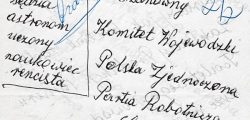 sędzia
astronom
uczony
naukowiec
rencista
Szanowny
Komitet Wojewódzki
Polska Zjednoczona
Partia Robotnicza